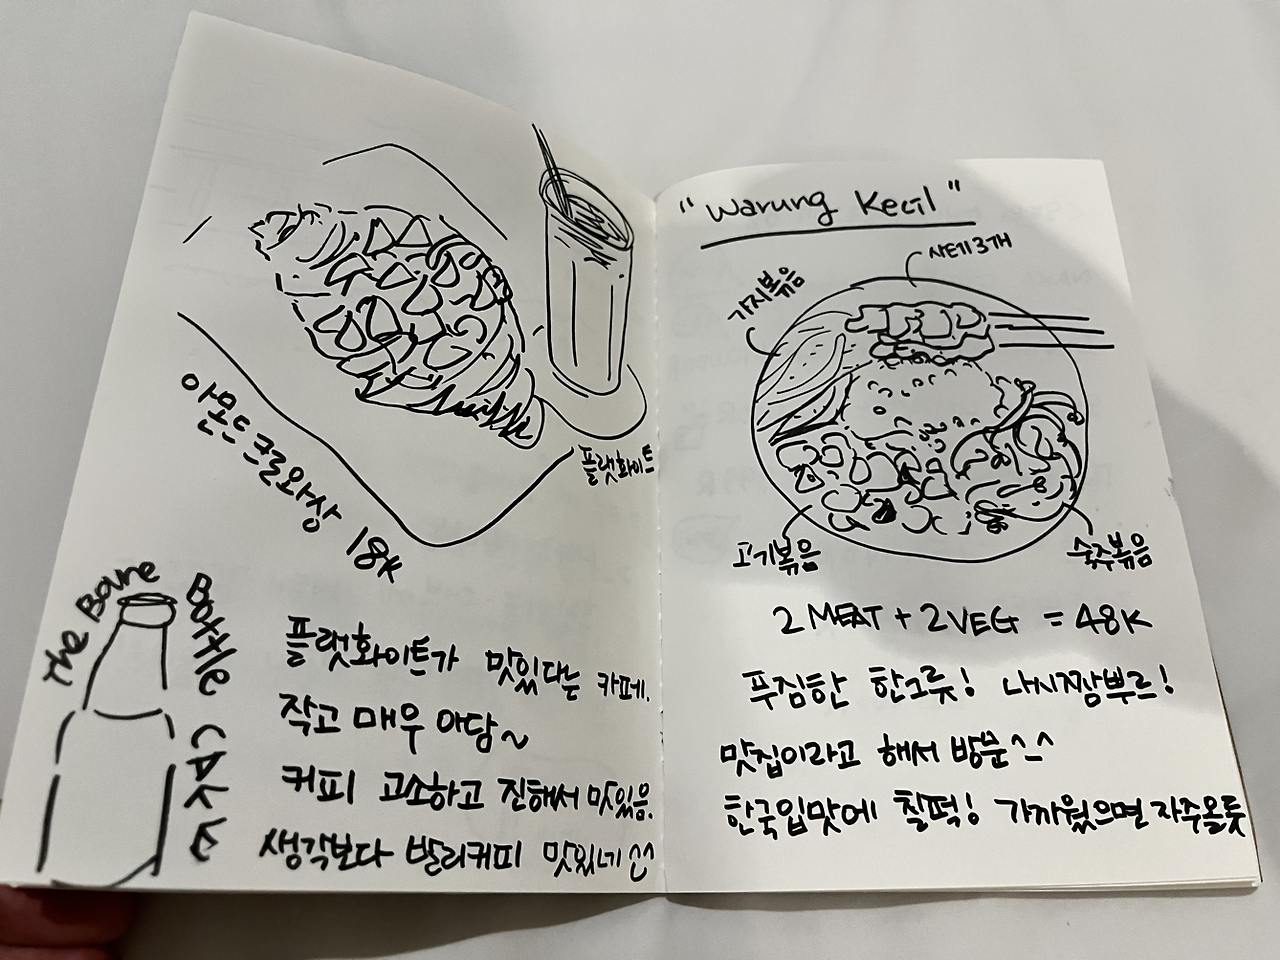 아몬드크로와상 18K
플랫화이트
The Bare
Bottle
CAKE
플랫화이트가 맛있다는 카페.
작고 매우 아담~
커피 고소하고 진해서 맛있음.
생각보다 발리커피 맛있네^^
"Warung Kecil"
사테3개
가지볶음
고기볶음
숙주볶음
2 MEAT + 2 VEG = 48K
푸짐한 한그릇! 나시짬뿌르!
맛집이라고 해서 방문^^
한국입맛에 칠떡! 가까웠으면 자주올듯